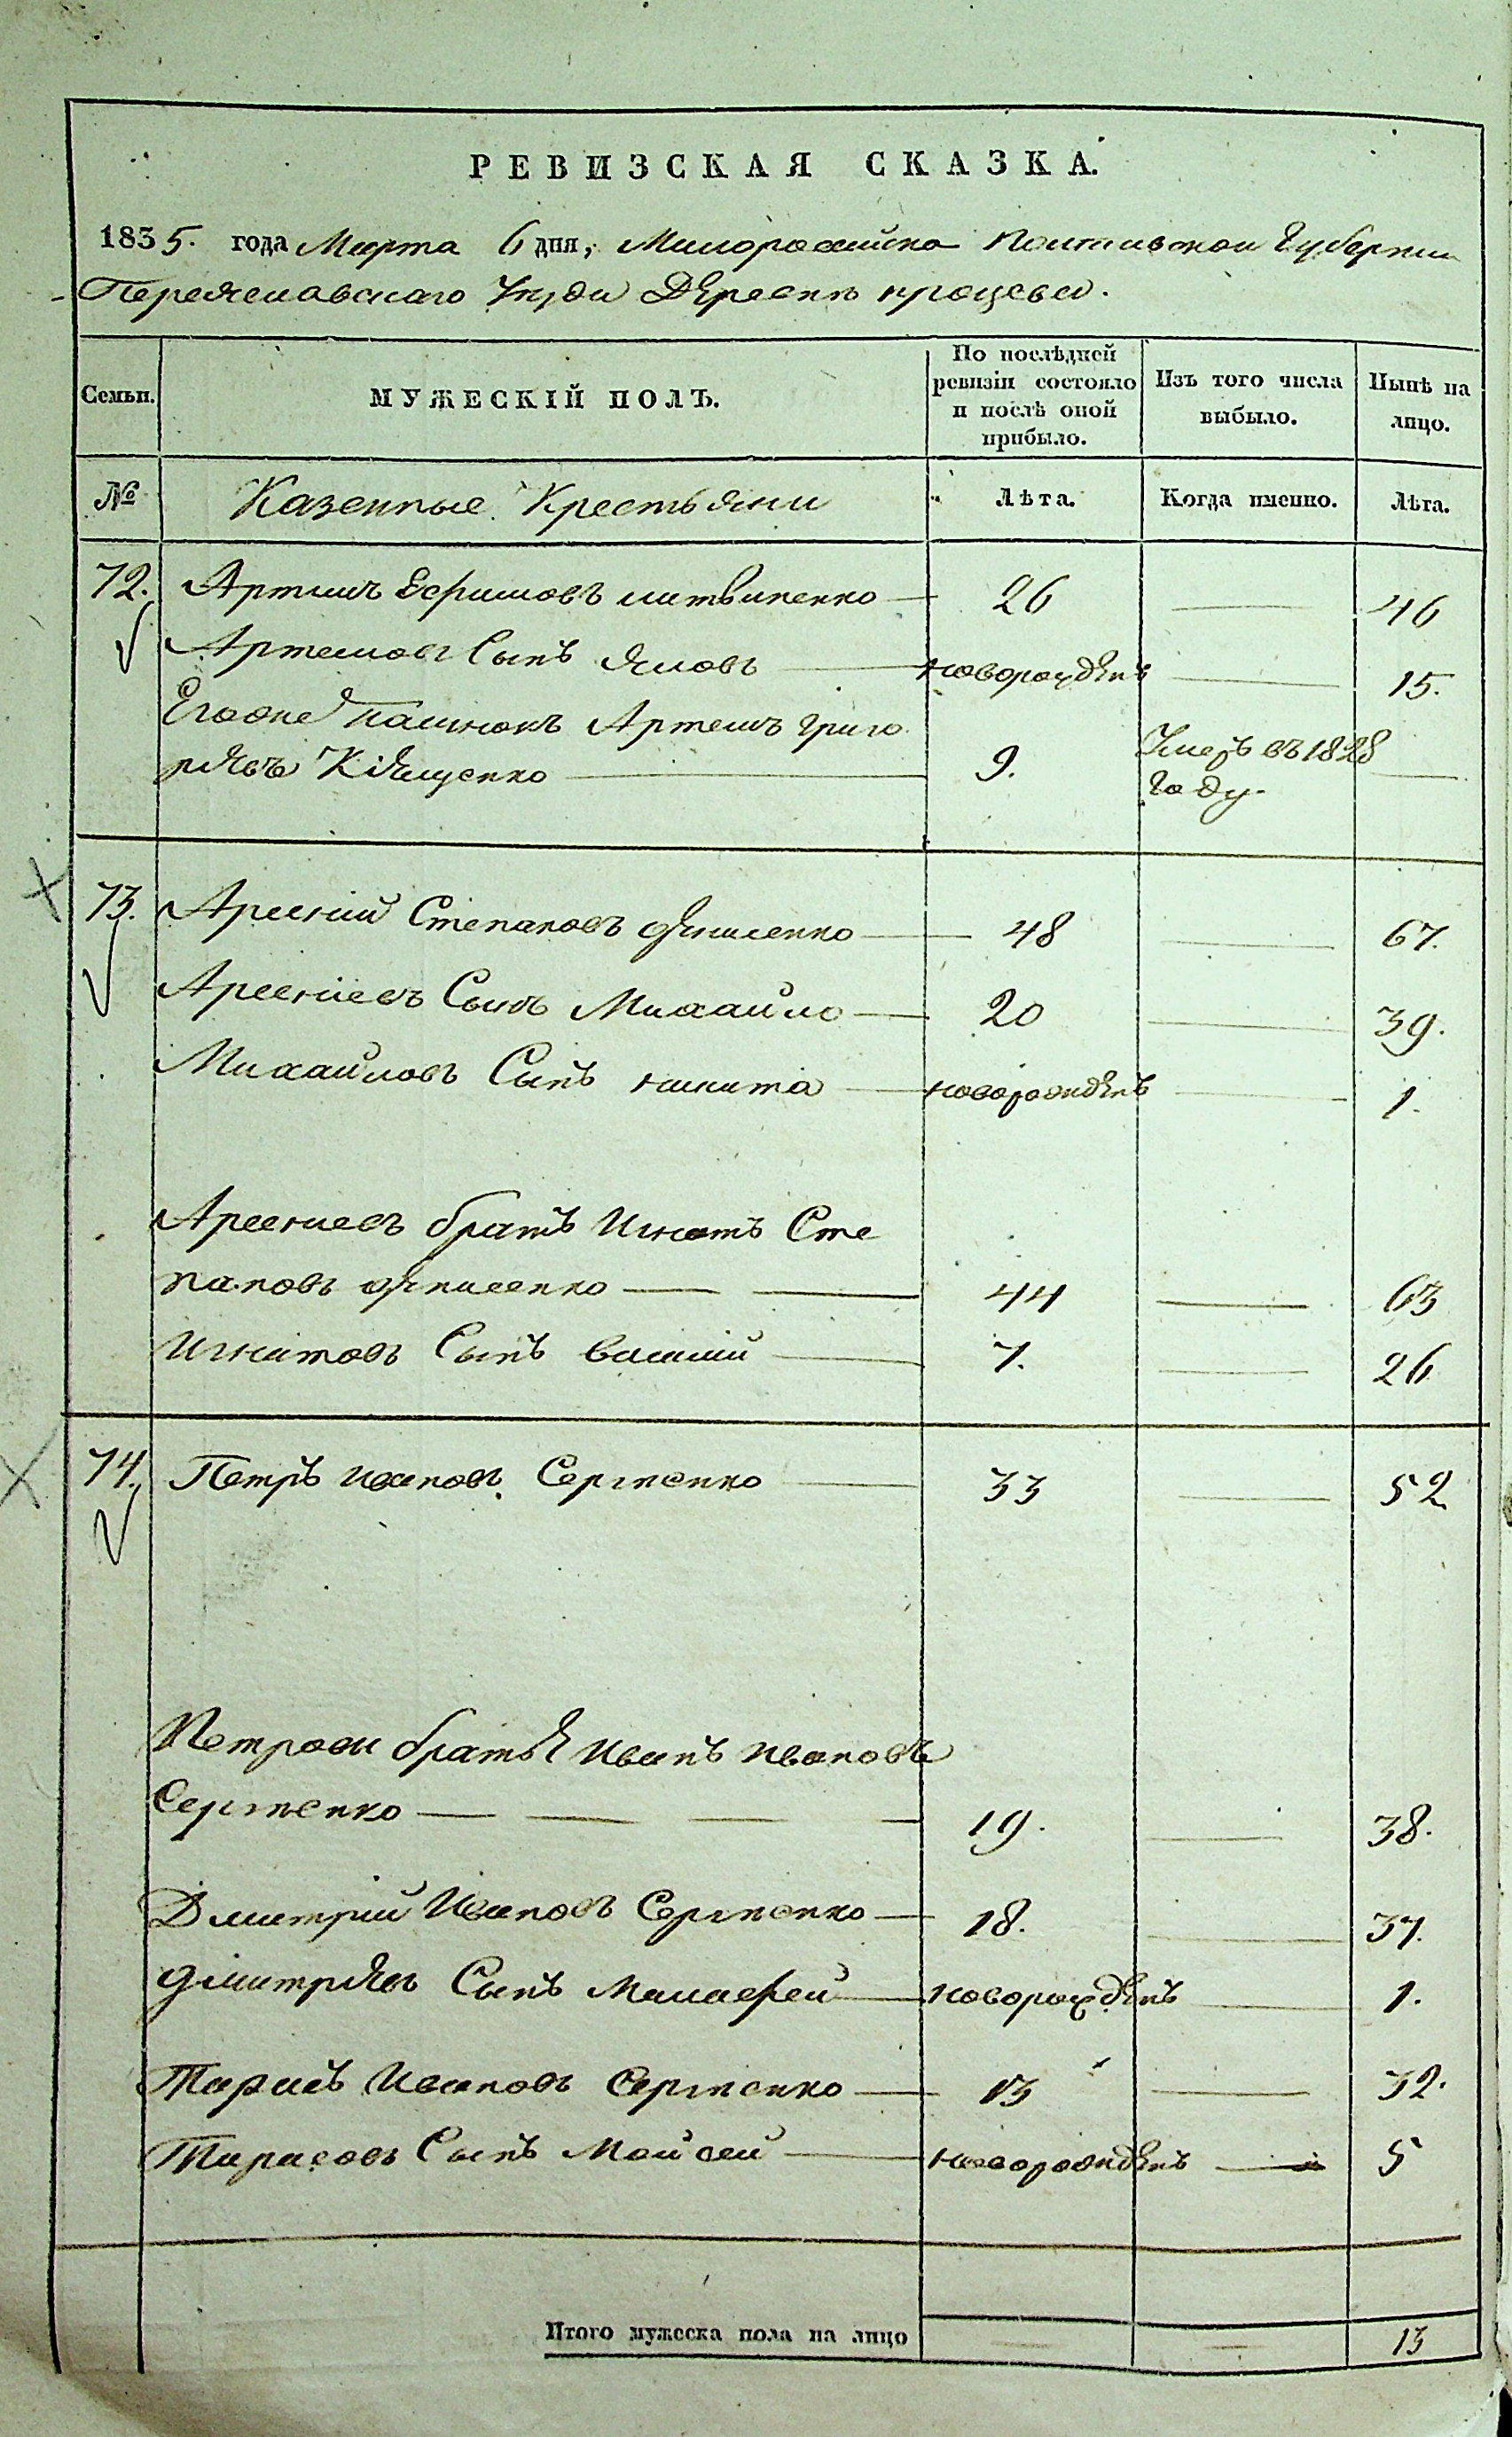 РЕВИЗСКАЯ СКАЗКА.
1835. года Марта 6 дня, Малоросийско Полтавской Губернии
Переяславскаго уезда Деревне
Семьи.
МУЖЕСКІЙ ПОЛЪ.
По послѣдней ревизіи состояло и послѣ оной прибыло.
Изъ того числа выбыло.
Нынѣ на лицо.
№
Казенные Крестьяни
Лѣта.
Когда именно.
Лѣта.
72. Артемъ Ефимовъ литвиненко 26 — 46
Артемовъ Сынъ яковъ новорожденъ — 15.
Егоже Артемъ Григо
рьевъ Кіященко 9. Умеръ въ 1828 году. —
73. Арсений Степановъ денисенко 48 — 67.
Арсениевъ Сынъ Михайло 20 — 39.
Михайловъ Сынъ никита новорожденъ — 1.
Арсениевъ братъ Игнатъ Сте
пановъ денисенко — 44 — 63
Игнатовъ Сынъ василий 7. — 26
74. Петръ Ивановъ Сергиенко 33 — 52
Петрови братья Иванъ Ивановъ
Сергиенко — 19. — 38.
Дмитрий Ивановъ Сергиенко 18. — 37.
дмитриевъ Сынъ Малафей новорожденъ — 1.
Тарасъ Ивановъ Сергиенко 13 — 32.
Тарасовъ Сынъ Мойсей новорожденъ — 5
Итого мужеска пола на лицо — — 13